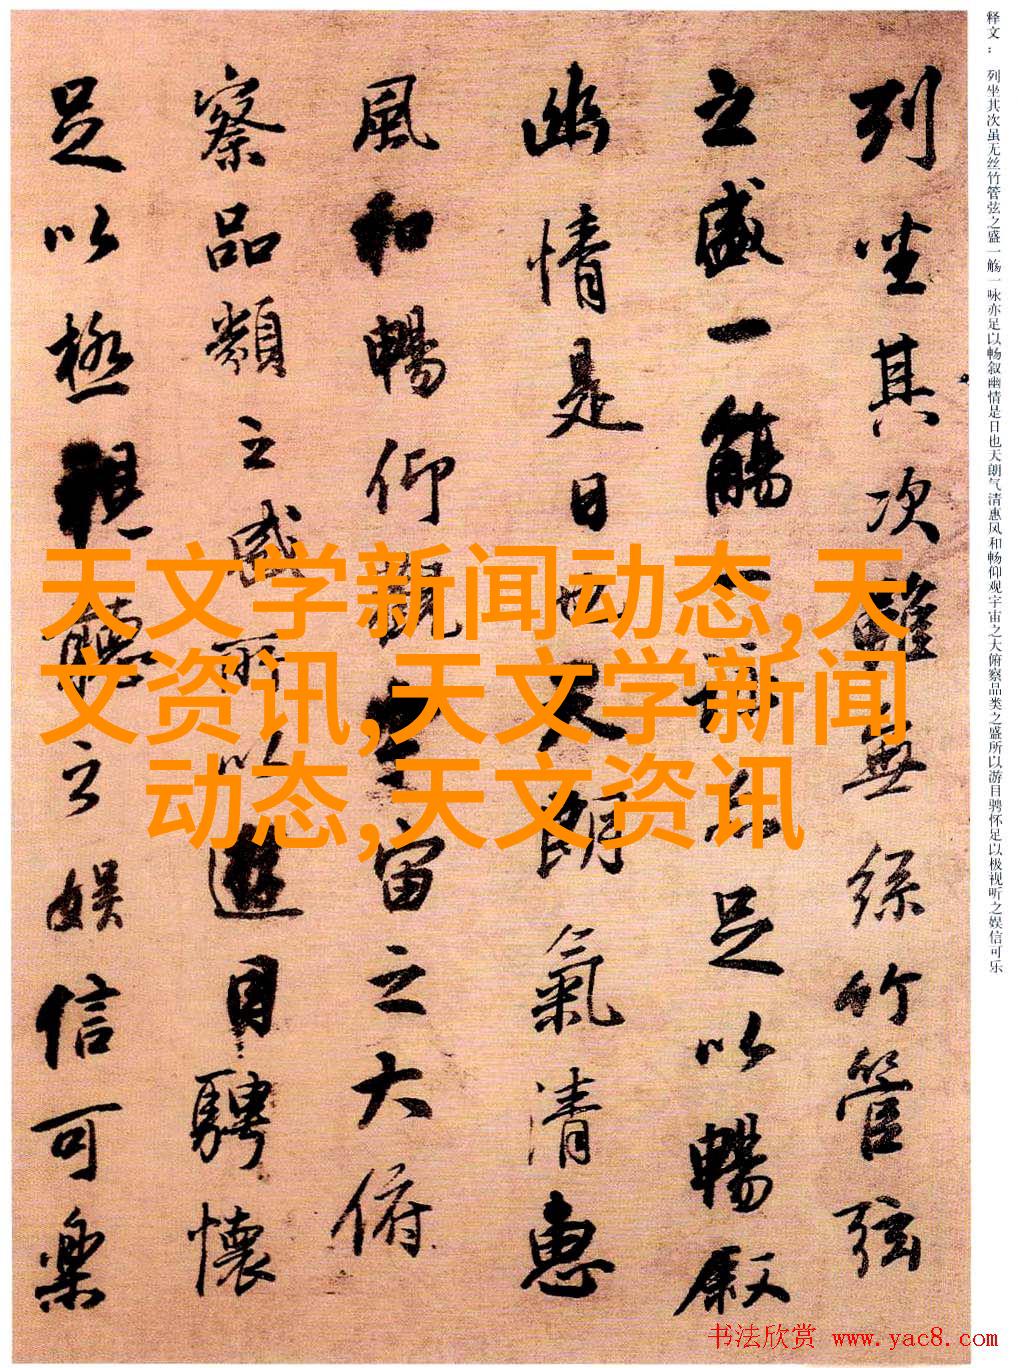 释文： 列坐其次虽无丝竹管弦之盛一觞一咏亦足以畅叙幽情是日也天朗气清惠风和畅仰观宇宙之大俯察品类之盛所以游目骋怀足以极视听之娱信可乐
列坐其次雖無絲竹管弦
之盛一觴一詠亦足以暢敘
幽情是日也天朗氣清惠
風和暢仰觀宇宙之大俯
察品類之盛所以遊目騁懷
足以極視聽之娛信可樂
天文学新闻动态,天
文资讯,天文学新闻
动态,天文资讯
书法欣赏 www.yac8.com